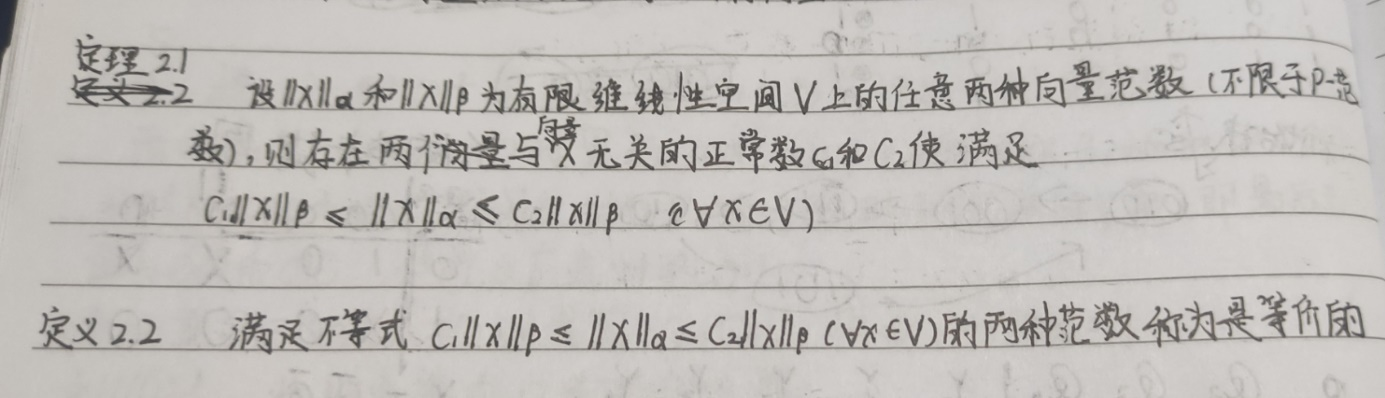 定理 2.1
设||X||α 和||X||β 为有限维线性空间 V 上的任意两种向量范数 (不限于P-范
数), 则存在两个与向量X无关的正常数C₁和C₂使满足
C₁||X||β ≤ ||X||α ≤ C₂||X||β (∀X∈V)
定义2.2 满足不等式 C₁||X||β ≤ ||X||α ≤ C₂||X||β (∀X∈V)的两种范数称为是等价的